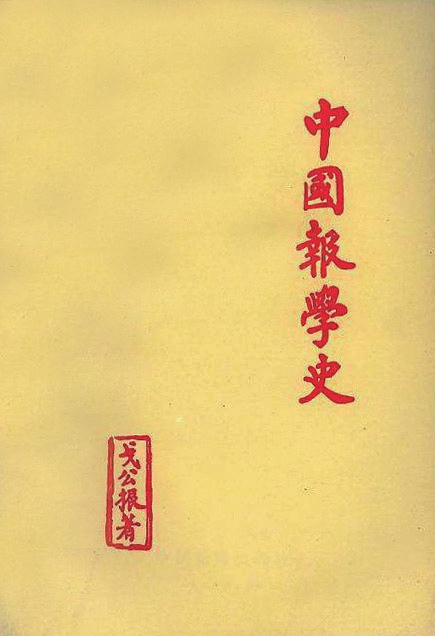 中國報學史
戈公振著